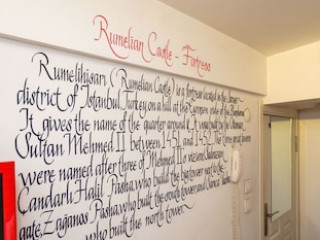 Rumelian Castle - Fortress
Rumelihisarı (Rumelian Castle) is a fortress located in the
district of Istanbul, Turkey, on a hill at the European side of the
It gives the name of the quarter around it. It was built by the Ottoman
Sultan Mehmed II between 1451 and 1452. The
were named after three of Mehmed II
Candarlı Halil Pasha, who built the big tower next to the
gate, Zağanos Pasha, who built the south tower and
who built the north tower.